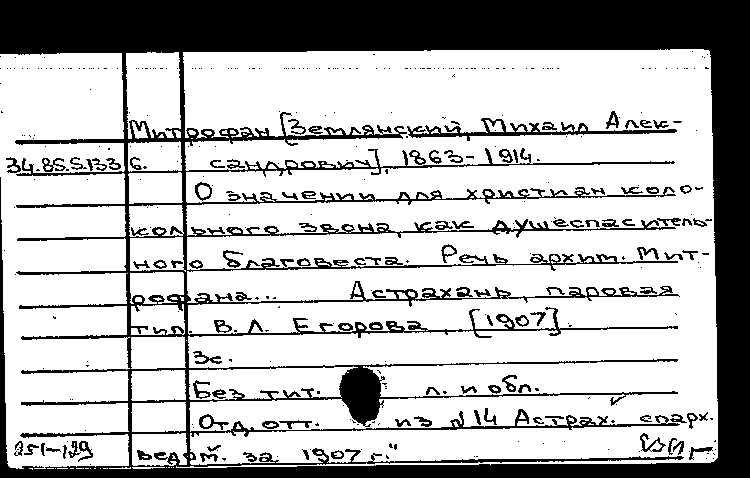 Митрофан [Землянский, Михаил Алек-
34.85.5.133 б. сандрович], 1863-1914.
О значении для христиан коло-
кольного звона, как душеспаситель-
ного благовеста. Речь архим. Мит-
рофана... Астрахань, паровая
тип. В.Л. Егорова, [1907].
3с.
Без тит. л. и обл.
"Отд. отт. из №14 Астрах. епарх.
ведом. за 1907 г."